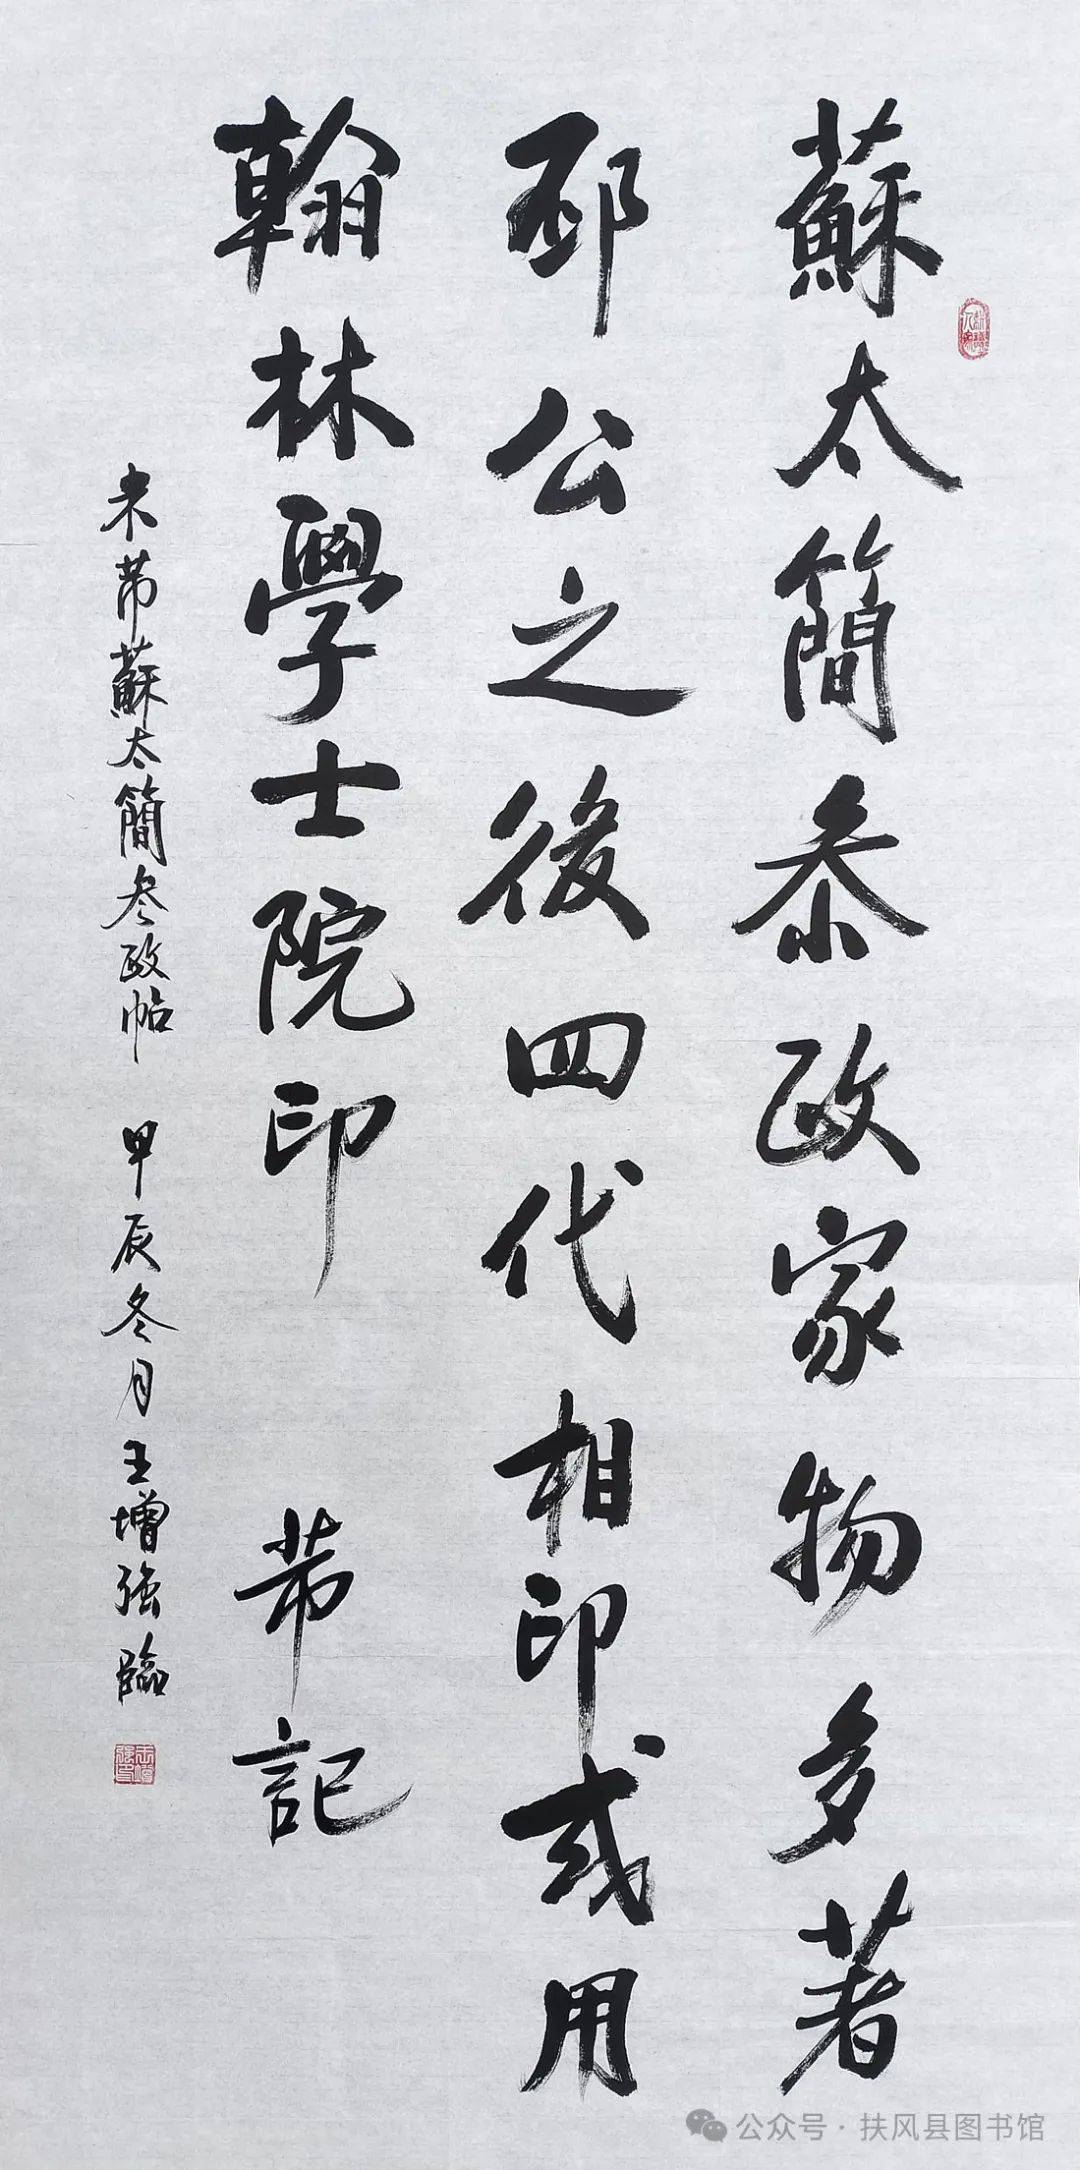 蘇太簡叅政家物多著
邳公之後四代相印或用
翰林學士院印 芾記
米芾蘇太簡叄政帖 甲辰冬月王增強臨
公众号·扶风县图书馆